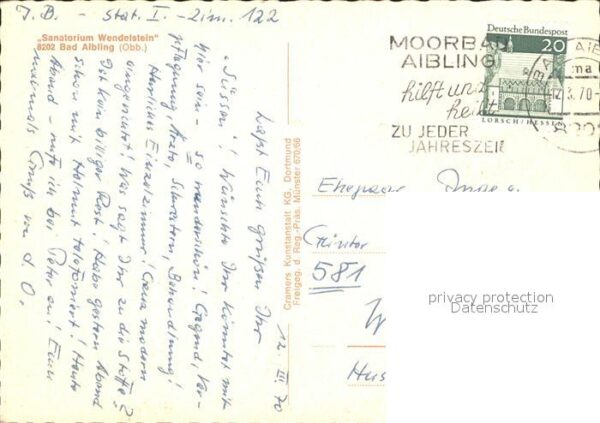 J. B. - Stat. I. - Zim. 122
„Sanatorium Wendelstein"
8202 Bad Aibling (Obb.)
12. III. 70
Laßt Euch grüßen Ihr
„Süssen"! Wünschte Ihr könntet mit
hier sein - so wunderschön! Gegend, Ver-
pflegung, Ärzte, Schwestern, Behandlung!
Herrliches Einzelzimmer! Ganz modern
eingerichtet! Was sagt Ihr zu die
Ist kein billiger Rest! Habe gestern Abend
schon mit Helmut telefoniert! Heute
Abend - rufe ich bei Peter an! Euer
nochmals Gruß
Cramers Kunstanstalt KG, Dortmund
Freigeg. d. Reg.-Präs. Münster 670/66
MOORBAD
AIBLING
hilft und
heilt
ZU JEDER
JAHRESZEIT
Deutsche Bundespost
20
LORSCH/HESSEN
12.3.70
Ehepaar
Günter
581
privacy protection
Datenschutz